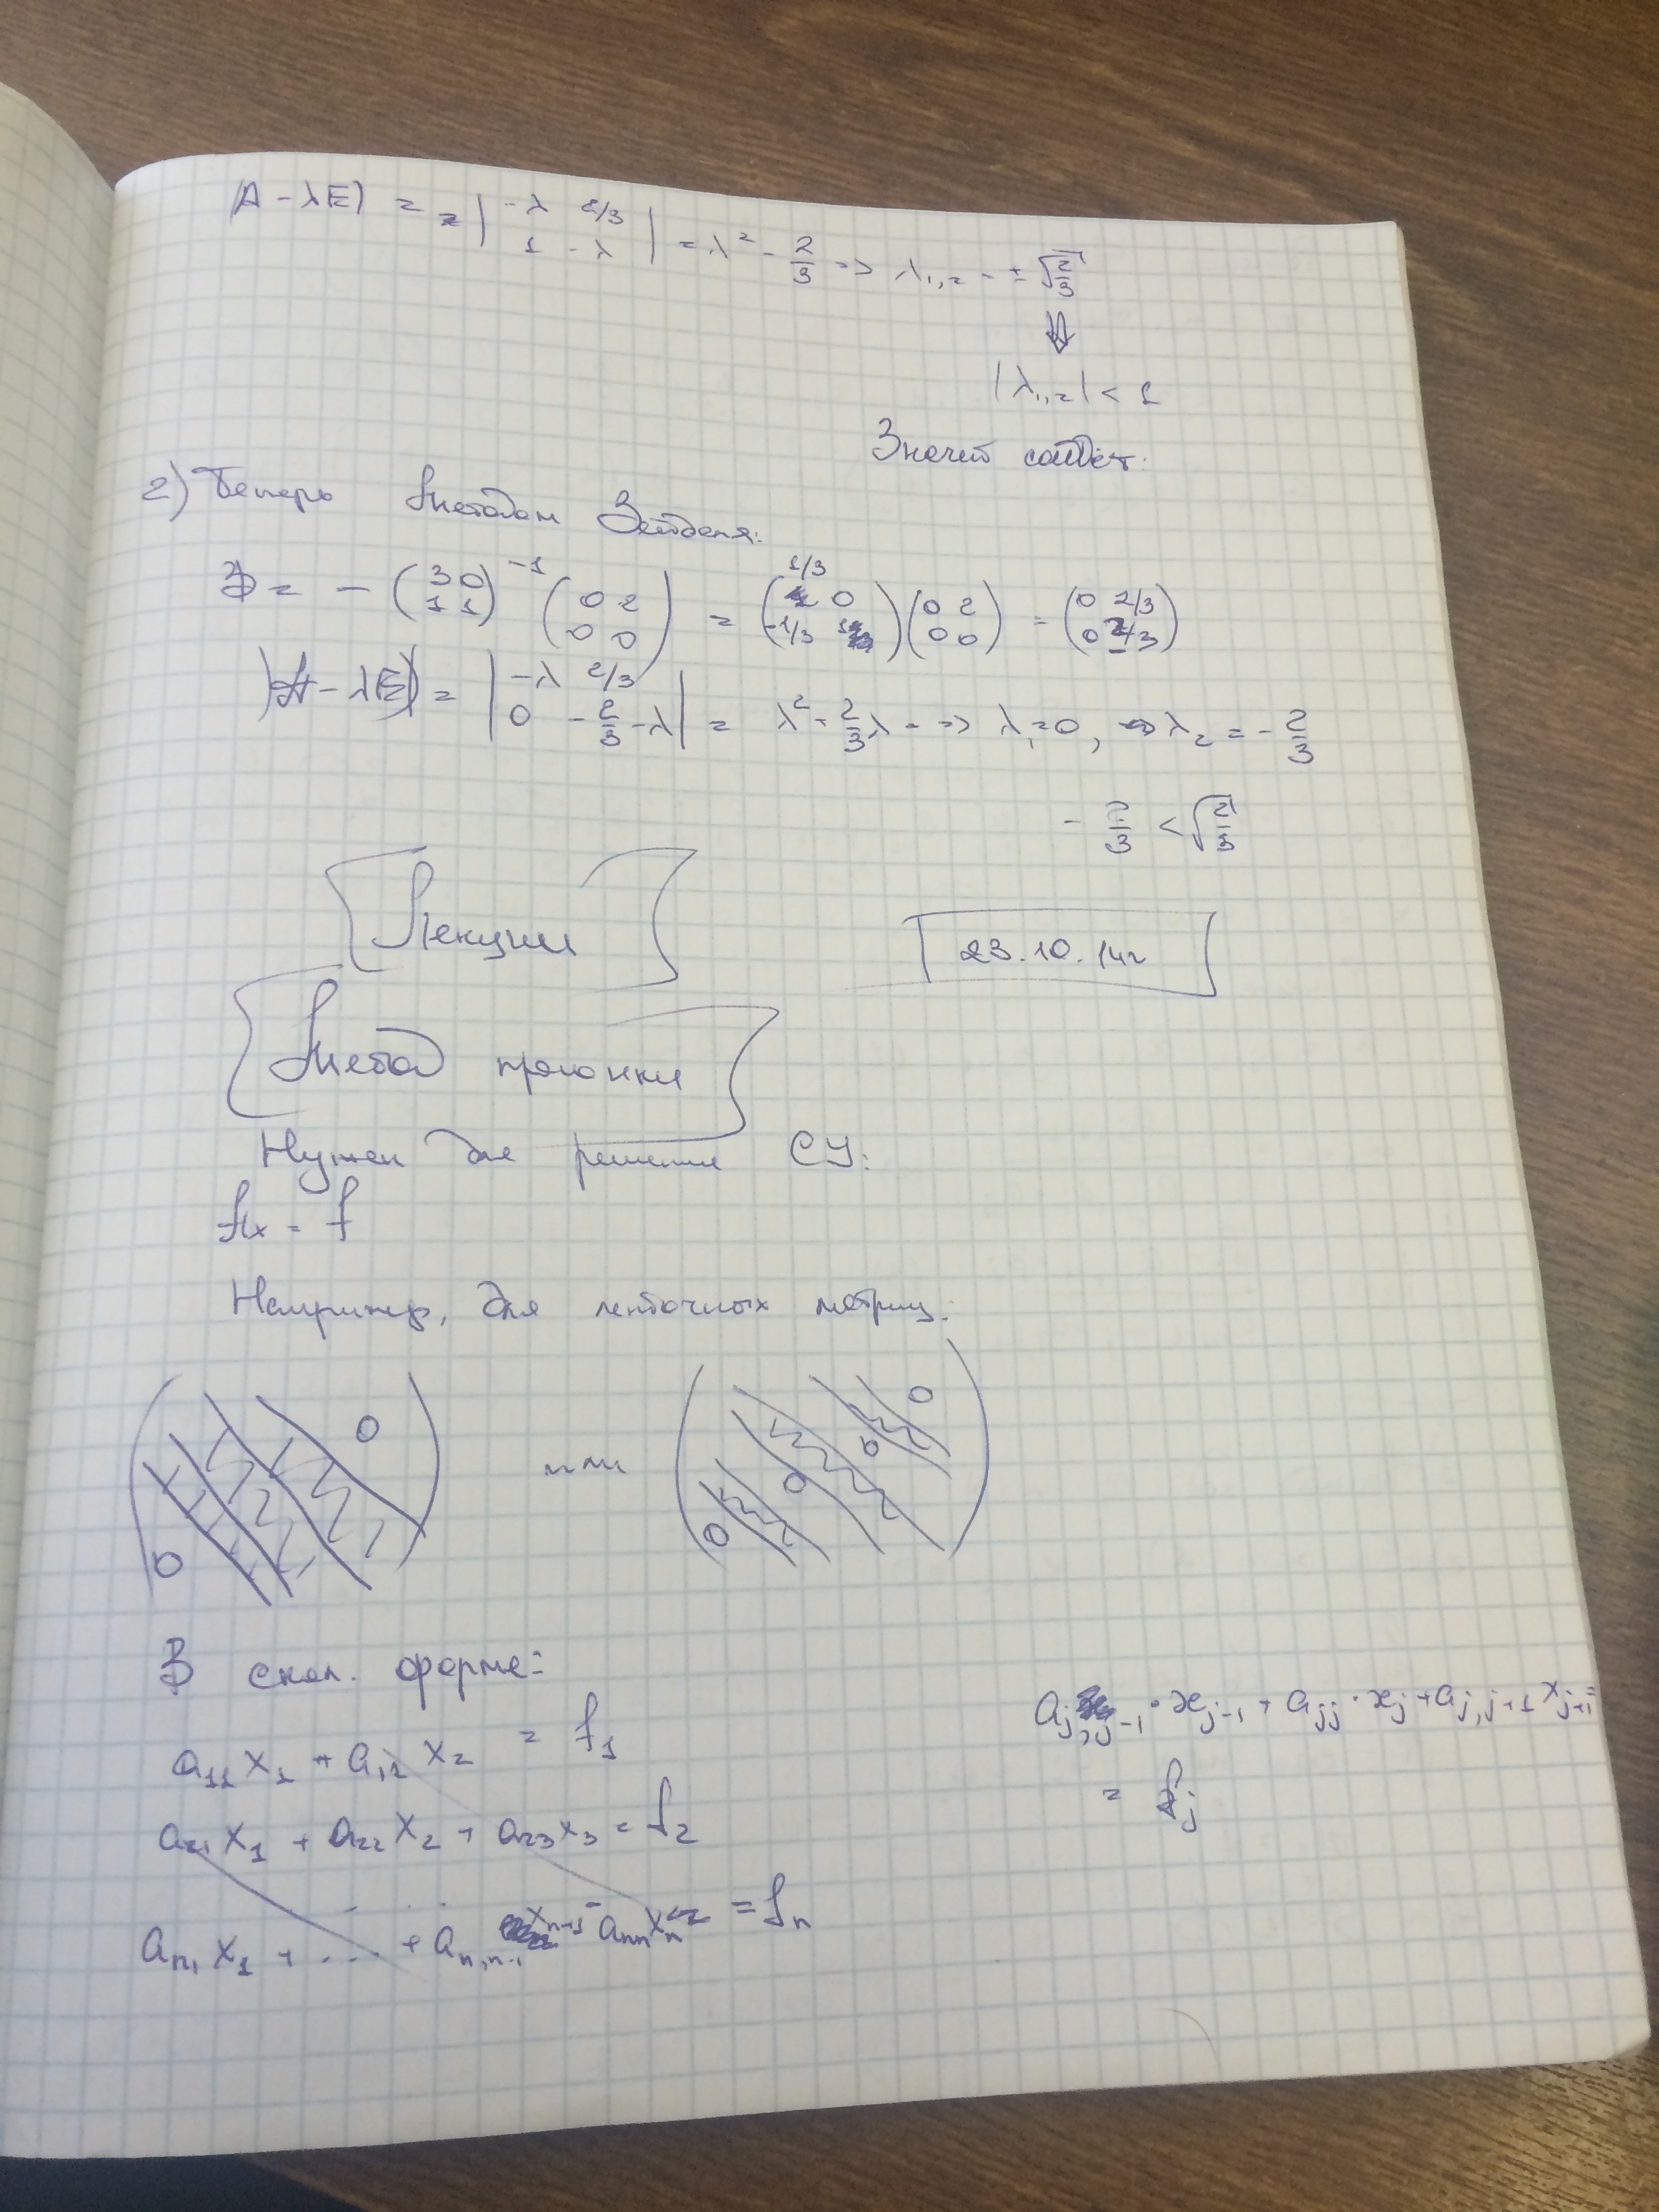 |A - λE| = = | -λ 2/3 ; 1 -λ | = λ² - 2/3 => λ₁,₂ - ± √(2/3)
⇓
|λ₁,₂| < 1
Значит сойдёт.
2) Теперь Методом Зейделя:
= - (3 0 ; 1 1)⁻¹ (0 2 ; 0 0) = (1/3 0 ; -1/3 1)(0 2 ; 0 0) = (0 2/3 ; 0 2/3)
|A - λE| = | -λ 2/3 ; 0 -2/3 - λ | = λ² + 2/3 λ => λ₁ = 0, => λ₂ = - 2/3
- 2/3 < √(2/3)
Лекции
23.10.14г
Метод прогонки
Нужен для решения СУ:
Ax = f
Например, для ленточных матриц:
0 0 или 0 0 0 0
В скал. форме:
a₁₁ x₁ + a₁₂ x₂ = f₁
a₂₁ x₁ + a₂₂ x₂ + a₂₃ x₃ = f₂
aₙ₁ x₁ + ... + aₙ,ₙ₋₁ xₙ₋₁ aₙₙ xₙ = fₙ
a_{j,j-1} · x_{j-1} + a_{jj} · x_j + a_{j,j+1} x_{j+1} =
= f_j